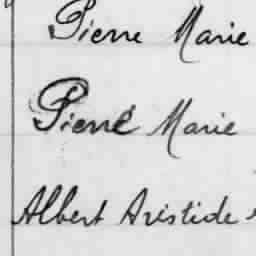 Pierre Marie
Pierre Marie
Albert Aristide